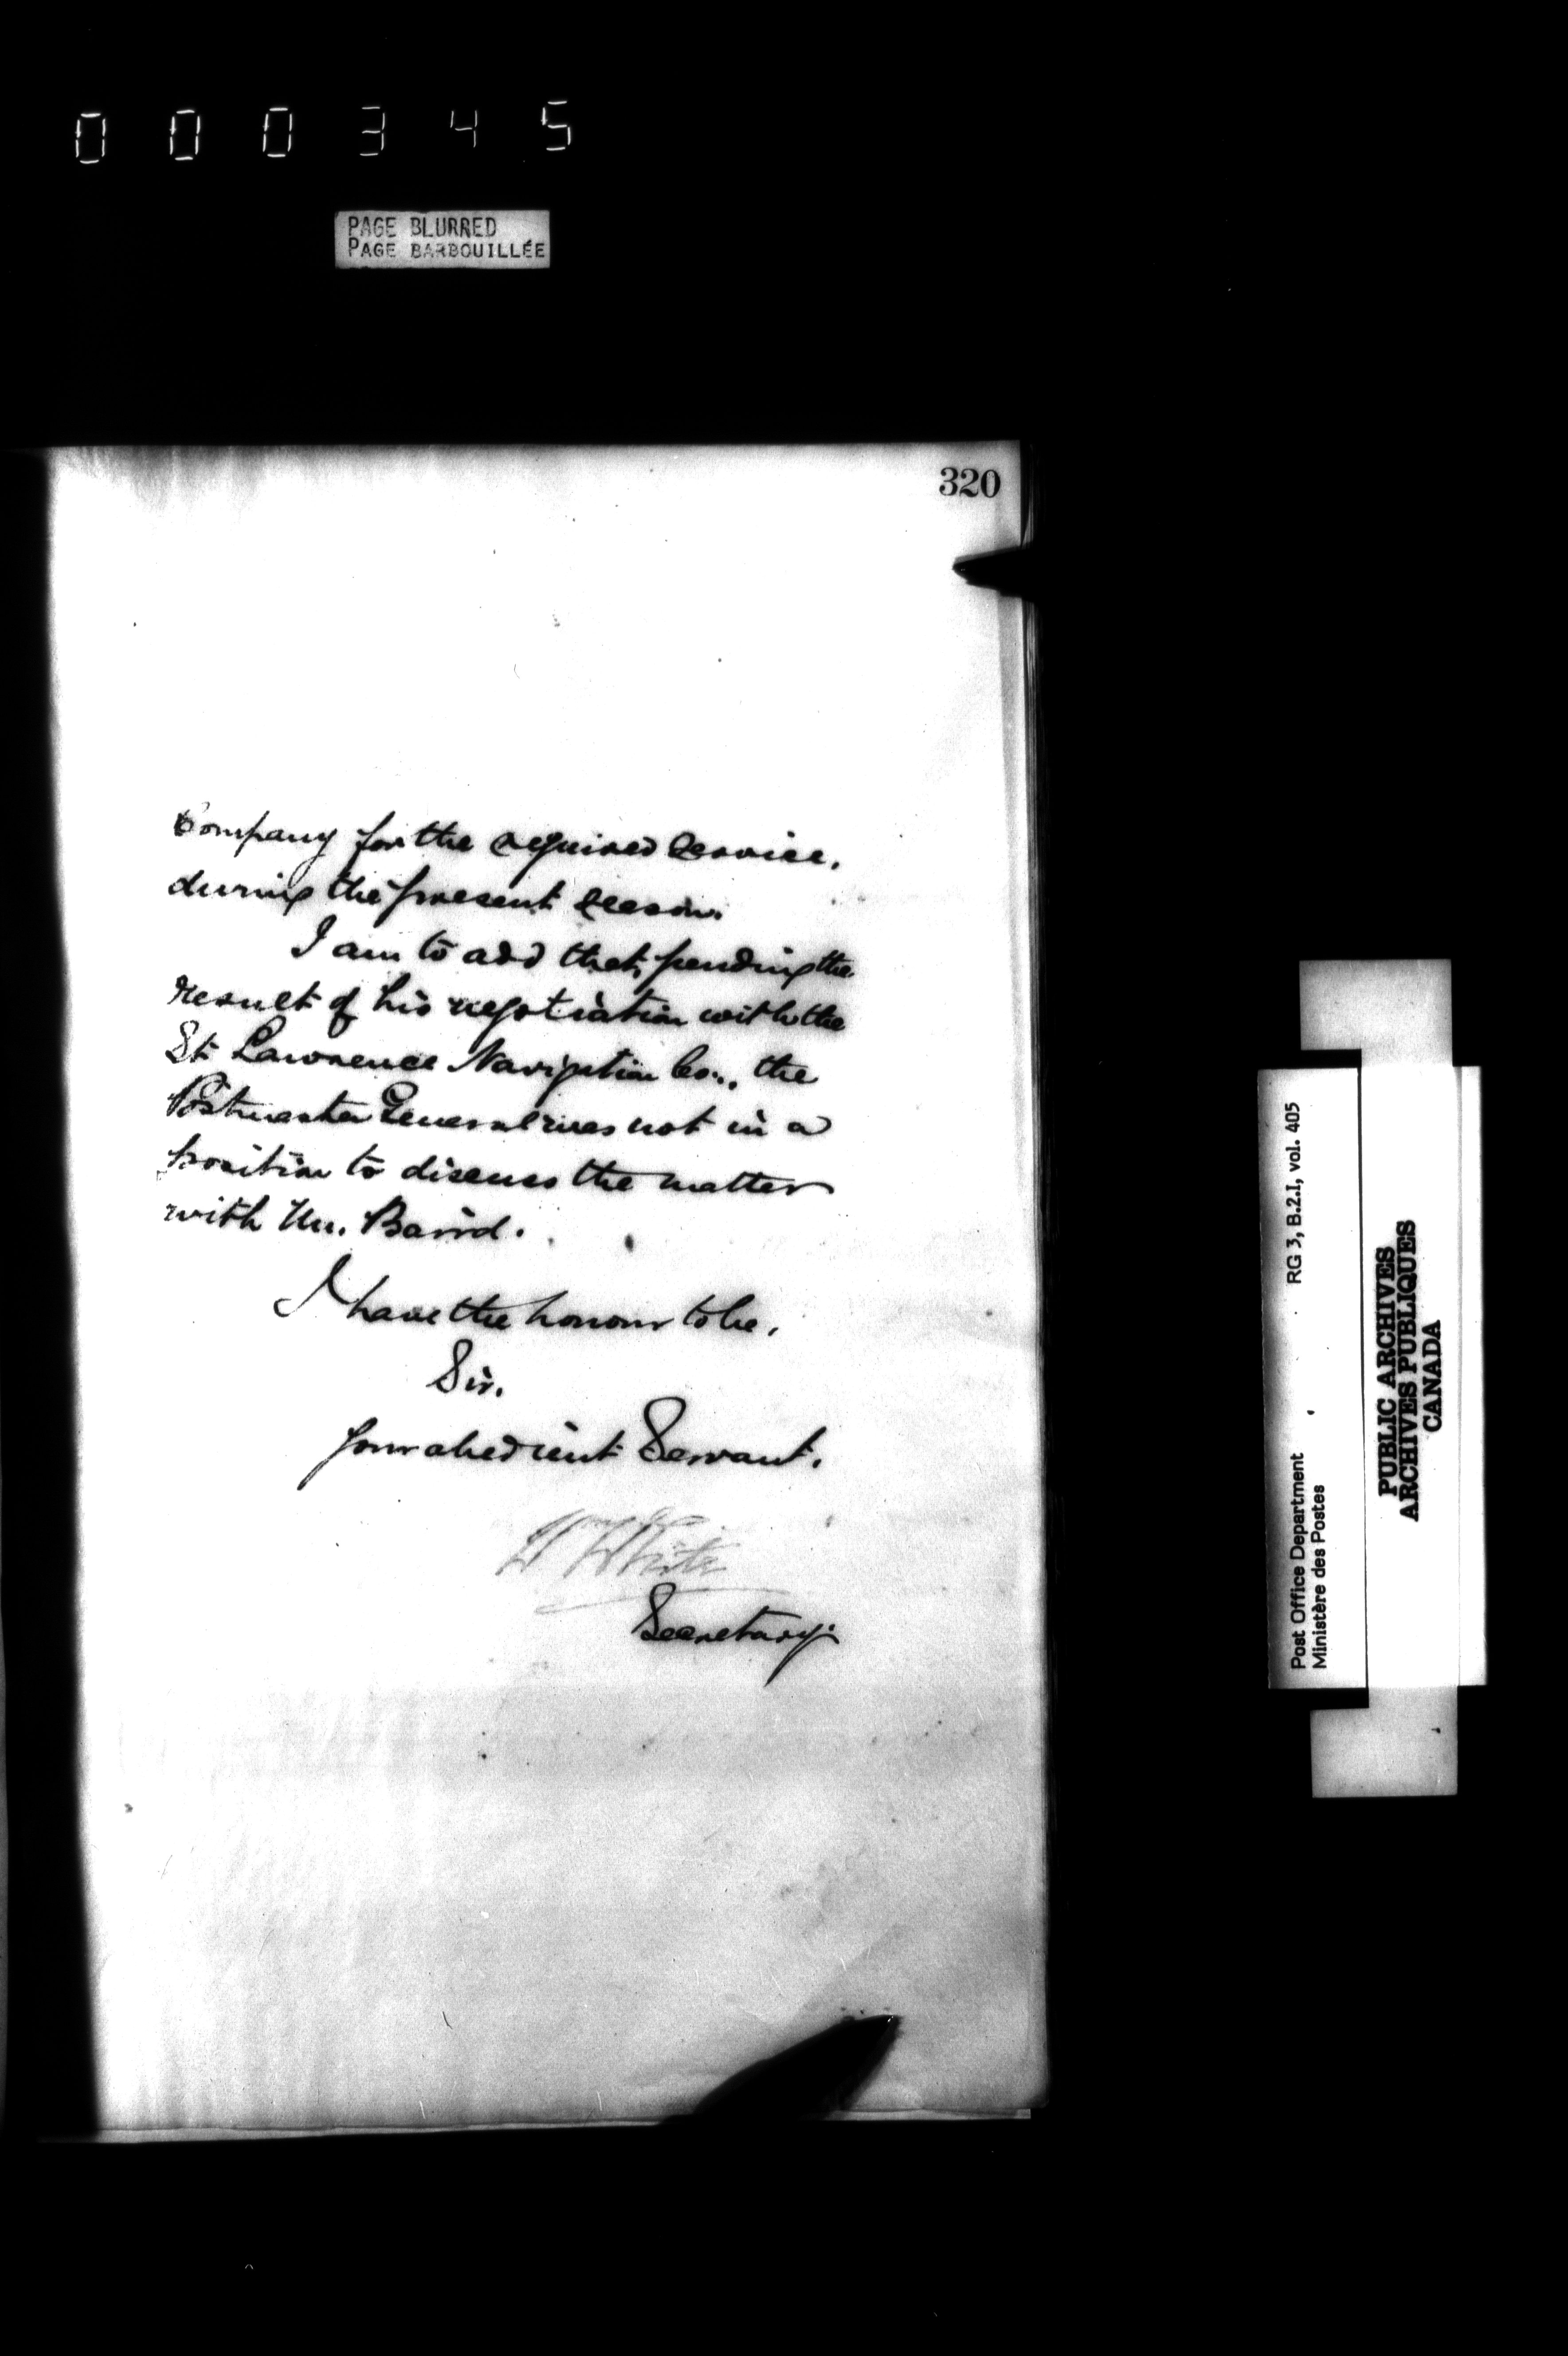 000345
PAGE BLURRED
PAGE BARBOUILLÉE
320
Company for the required Service,
during the present season.
I am to add that, pending the
result of his negotiation with the
St. Lawrence Navigation Co., the
Postmaster General was not in a
position to discuss the matter
with Mr. Baird.
I have the honour to be,
Sir,
Your obedient Servant,
Wm White
Secretary.
Post Office Department RG 3, B.2.I, vol. 405
Ministère des Postes
PUBLIC ARCHIVES
ARCHIVES PUBLIQUES
CANADA